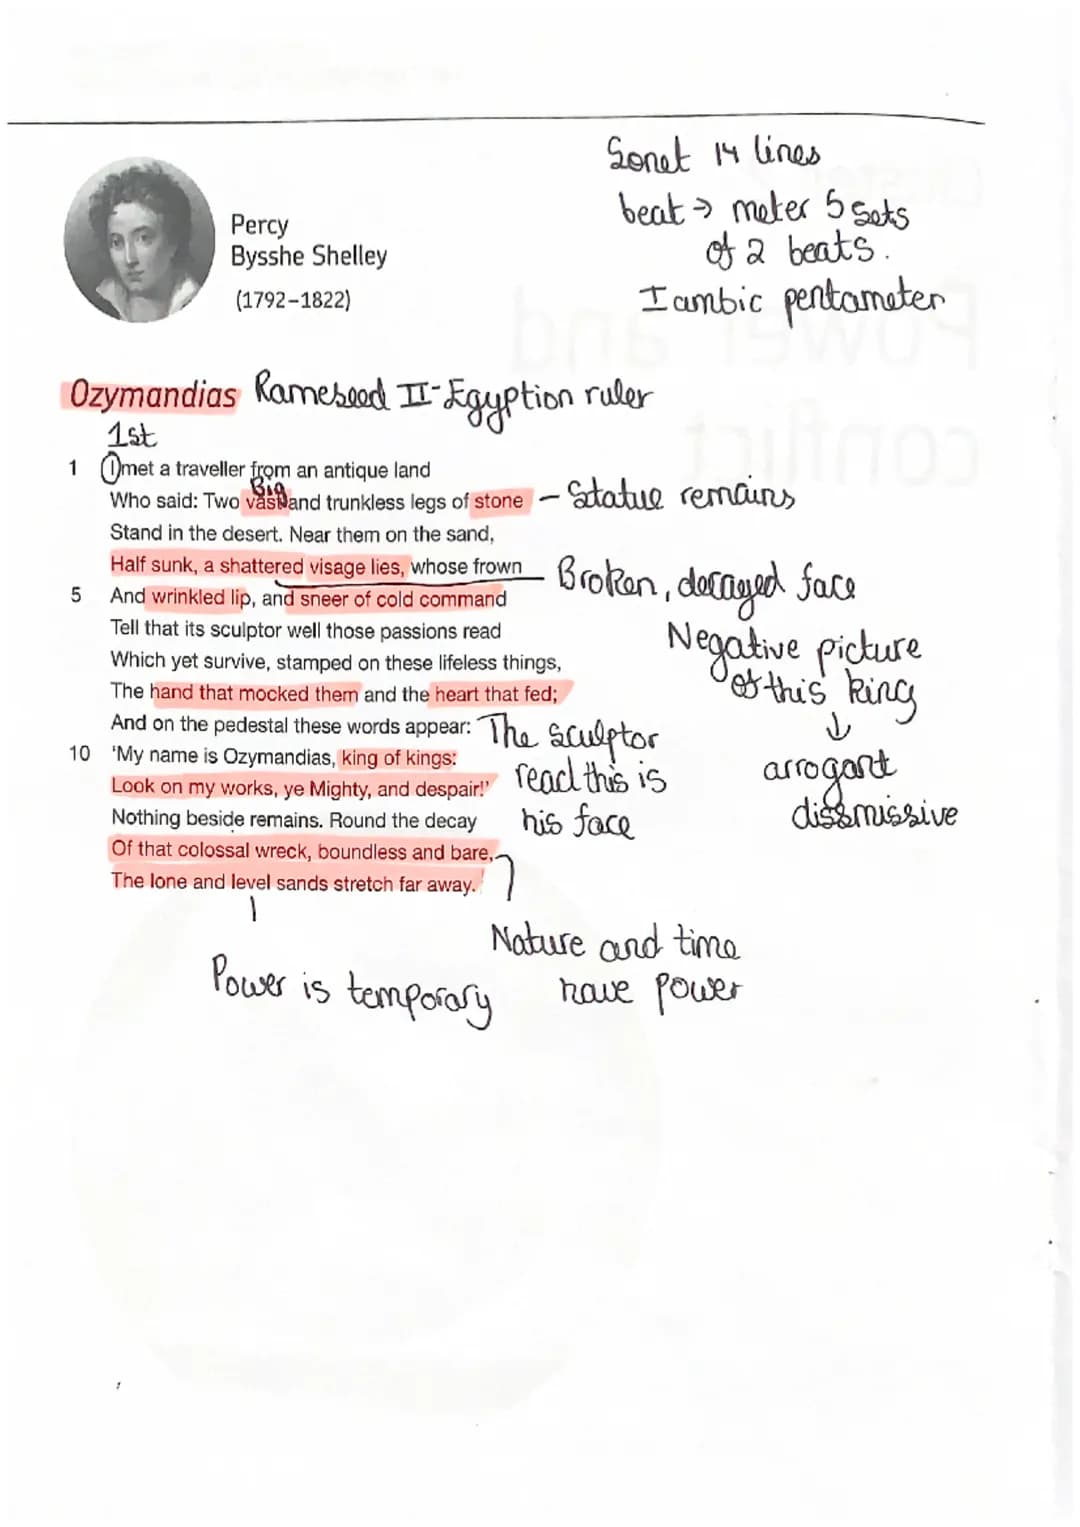 Sonet 14 lines
beat → meter 5 sets
of 2 beats.
Iambic pentameter
Percy
Bysshe Shelley
(1792–1822)
Ozymandias Rameseed II - Egyption ruler
1st
1 I met a traveller from an antique land
Big
Who said: Two vast and trunkless legs of stone – Statue remains
Stand in the desert. Near them on the sand,
Half sunk, a shattered visage lies, whose frown
Broken, decayed face
5 And wrinkled lip, and sneer of cold command
Tell that its sculptor well those passions read
Which yet survive, stamped on these lifeless things,
The hand that mocked them and the heart that fed;
And on the pedestal these words appear:
10 'My name is Ozymandias, king of kings:
Look on my works, ye Mighty, and despair!'
Nothing beside remains. Round the decay
Of that colossal wreck, boundless and bare,
The lone and level sands stretch far away.'
Negative picture
of this king
↓
arrogant
dissmissive
The sculptor
read this is
his face
Nature and time
have power
Power is temporary
Power and
conflict